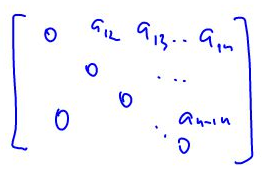 0 a₁₂ a₁₃ .. a₁ₙ
0 ...
0
0 ⋱ aₙ₋₁ₙ
0